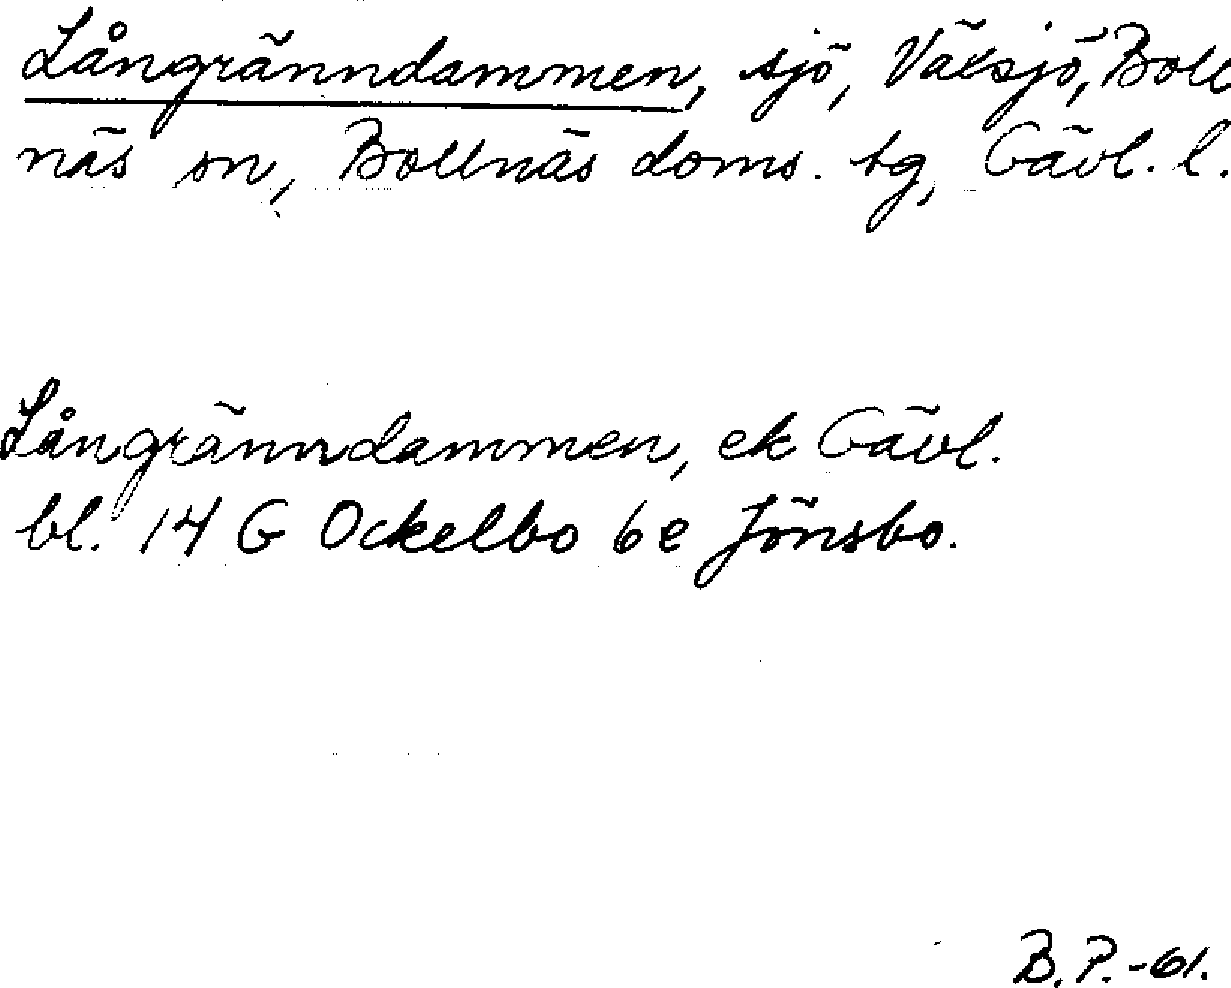 Långränndammen, sjö, Växsjö, Boll
näs sn, Bollnäs doms. tg, Gävl. l.
Långränndammen, ek Gävl.
bl. 14 G Ockelbo 6e Jönsbo.
B.P.-61.